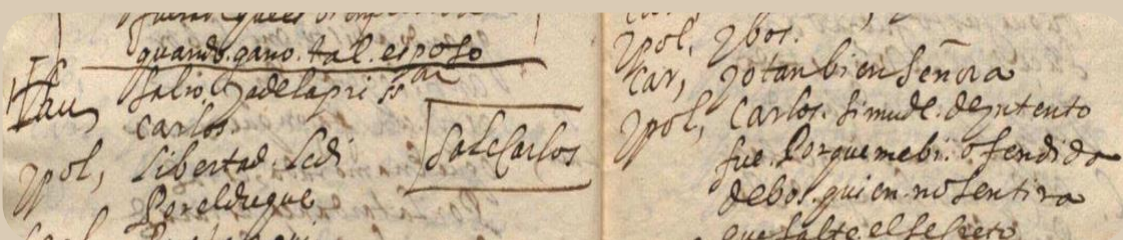 quando. gano. tal. esposo
salio. ya de la prissⁿ
Carlos
ypol, libertad. le di
Por el duque
Sale Carlos
ypol, y bos.
Car, yo tanbien señora
ypol, Carlos. si mude. de yntento
fue. Porque me bi. ofendida
de bos. quien no sentira
que falte. el secreto